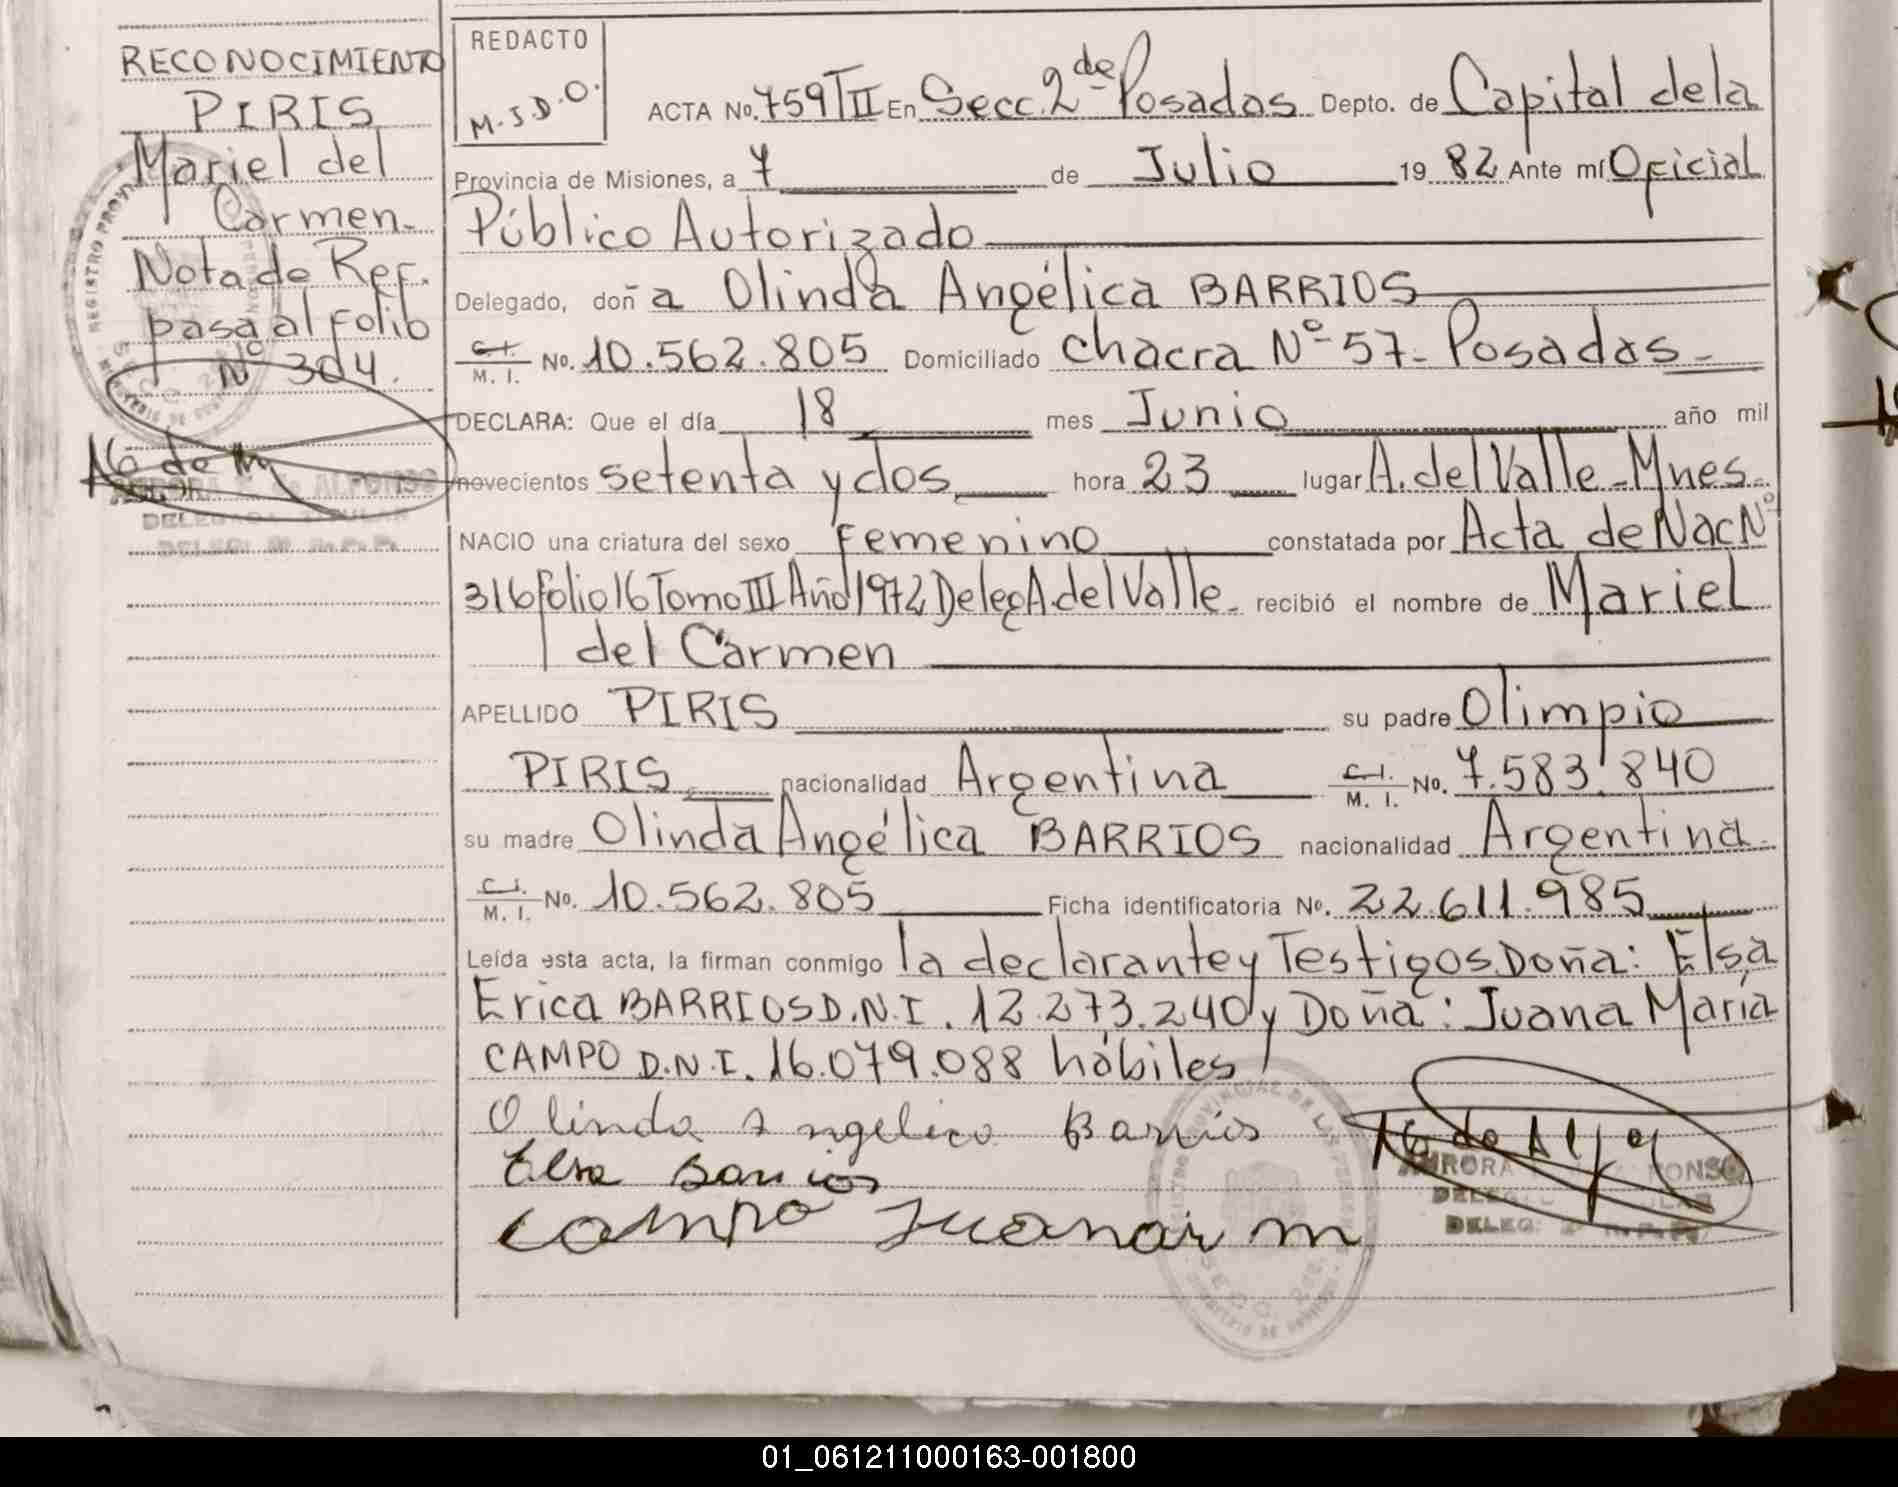 RECONOCIMIENTO
PIRIS
Mariel del
Carmen.
Nota de Ref.
pasa al Folio
Nº 304.
REDACTO
M.S.D.O.
ACTA No. 759 TII En Secc. 2da de Posadas Depto. de Capital de la
Provincia de Misiones, a 7 de Julio 19 82 Ante mí Oficial
Público Autorizado
Delegado, doña Olinda Angélica BARRIOS
C.I. M. I. No. 10.562.805 Domiciliado chacra Nº 57- Posadas
DECLARA: Que el día 18 mes Junio año mil
novecientos setenta y dos hora 23 lugar A. del Valle - Mnes.
NACIO una criatura del sexo Femenino constatada por Acta de Nac Nº
316 folio 16 Tomo III Año 1972 Deleg A. del Valle recibió el nombre de Mariel
del Carmen
APELLIDO PIRIS su padre Olimpio
PIRIS nacionalidad Argentina C.I. M. I. No. 7.583.840
su madre Olinda Angélica BARRIOS nacionalidad Argentina
C.I. M. I. No. 10.562.805 Ficha identificatoria No. 22.611.985
Leída esta acta, la firman conmigo la declarante y Testigos Doña: Elsa
Erica BARRIOS D.N.I. 12.273.240 y Doña: Juana María
CAMPO D.N.I. 16.079.088 hábiles
Olinda Angelica Barrios
Elsa Barrios
Campo Juana m
01_061211000163-001800